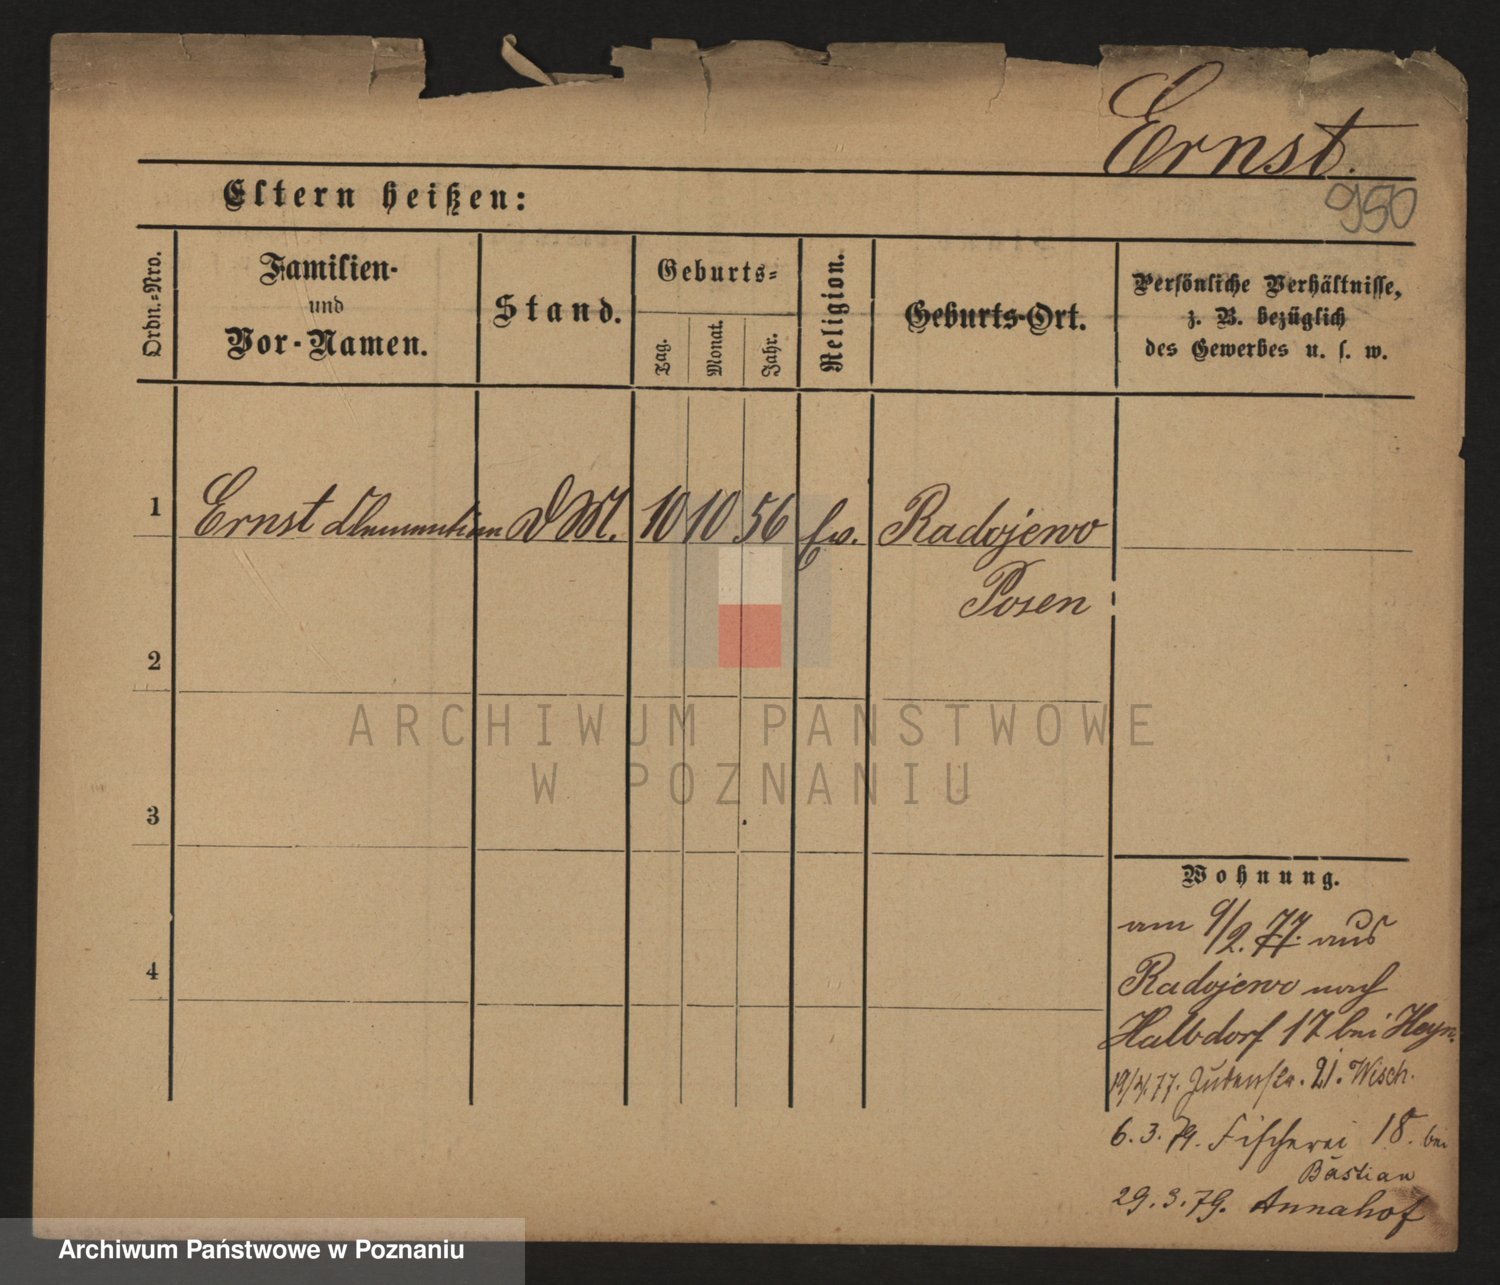 Ernst.
950
Eltern heißen:
Ordn.-Nro.
Familien-
und
Vor-Namen.
Stand.
Geburts-
Tag.
Monat.
Jahr.
Religion.
Geburts-Ort.
Persönliche Verhältnisse,
z. B. bezüglich
des Gewerbes u. s. w.
1 Ernst DM. 10 10 56 Ev. Radojewo
Posen
2
3
4
ARCHIWUM PAŃSTWOWE
W POZNANIU
Wohnung.
am 9/2. 77. aus
Radojewo nach
Halbdorf 17 bei Heyn.
19/4. 77. Judenstr. 21. Wisch.
6. 3. 79. Fischerei 18. bei
Bastian
29. 3. 79. Annahof
Archiwum Państwowe w Poznaniu